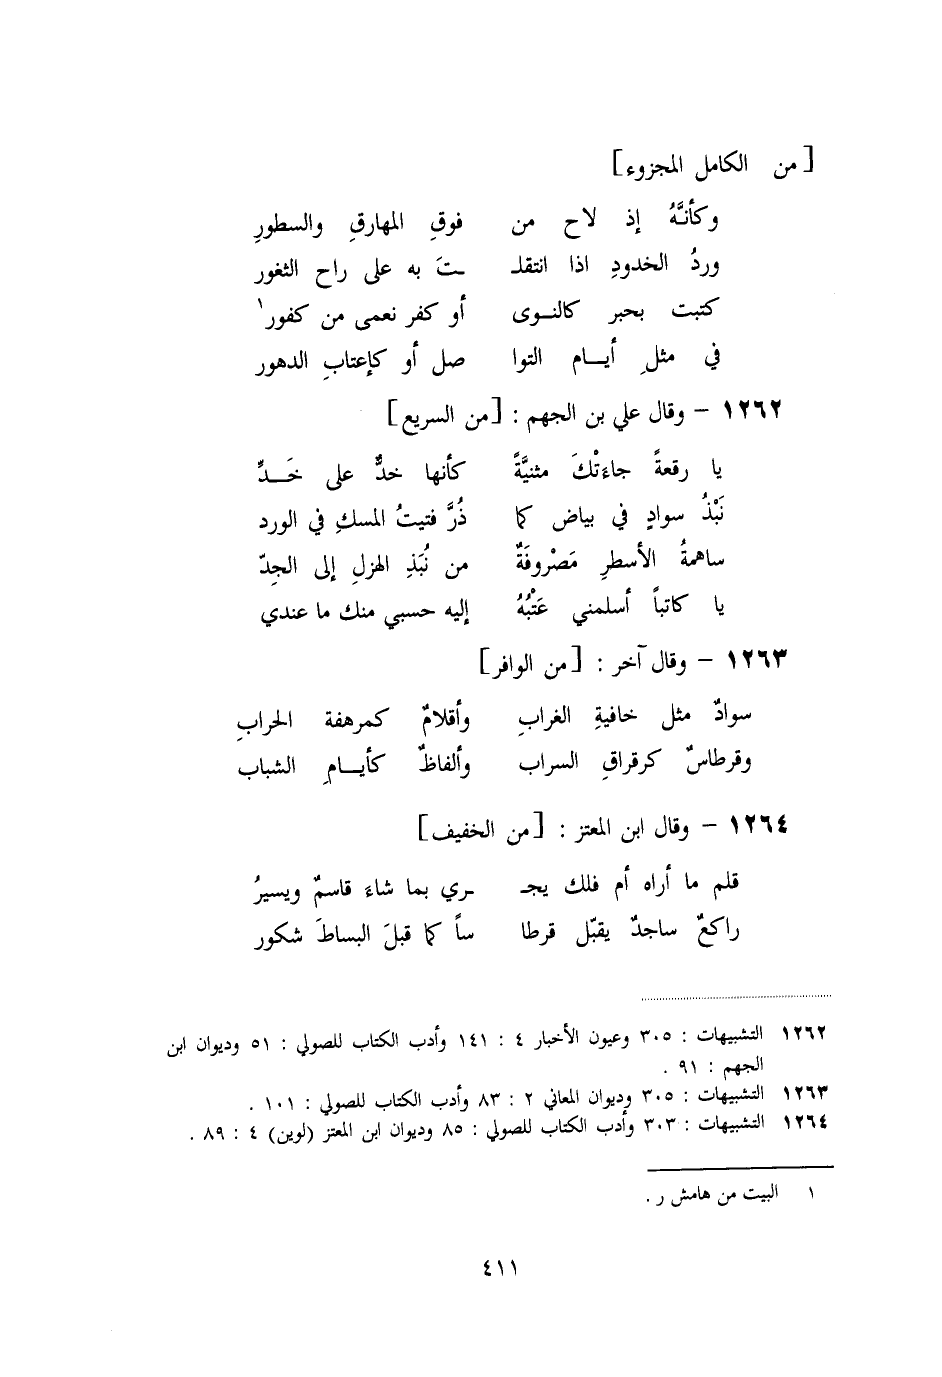 [من الكامل المجزوء]
وكأنَّهُ إذ لاح من فوقِ المهارقِ والسطورِ
وردُ الخدودِ اذا انتقلـ ـتَ به على راح الثغور
كتبت بحبر كالنـوى أو كفر نعمى من كفور١
في مثلِ أيـام التوا صل أو كإعتابِ الدهور
١٢٦٢ – وقال علي بن الجهم : [من السريع]
يا رقعةً جاءتْكَ مثنيَّةً كأنها خدٌّ على خَـدٍّ
نَبْذُ سوادٍ في بياض كما ذُرَّ فتيتُ المسكِ في الورد
ساهمةُ الأسطرِ مَصْروفَةٌ من نُبَذِ الهزلِ إلى الجِدّ
يا كاتباً أسلمني عَتْبُهُ إليه حسبي منك ما عندي
١٢٦٣ – وقال آخر : [من الوافر]
سوادٌ مثل خافيةِ الغرابِ وأقلامٌ كمرهفة الحرابِ
وقرطاسٌ كرقراقِ السراب وألفاظٌ كأيـامِ الشباب
١٢٦٤ – وقال ابن المعتز : [من الخفيف]
قلم ما أراه أم فلك يجـ ـري بما شاءَ قاسمٌ ويسيرُ
راكعٌ ساجدٌ يقبّل قرطا ساً كما قبلَ البساطَ شكور
١٢٦٢ التشبيهات : ٣٠٥ وعيون الأخبار ٤ : ١٤١ وأدب الكتاب للصولي : ٥١ وديوان ابن
الجهم : ٩١ .
١٢٦٣ التشبيهات : ٣٠٥ وديوان المعاني ٢ : ٨٣ وأدب الكتاب للصولي : ١٠١ .
١٢٦٤ التشبيهات : ٣٠٣ وأدب الكتاب للصولي : ٨٥ وديوان ابن المعتز (لوين) ٤ : ٨٩ .
١ البيت من هامش ر .
٤١١